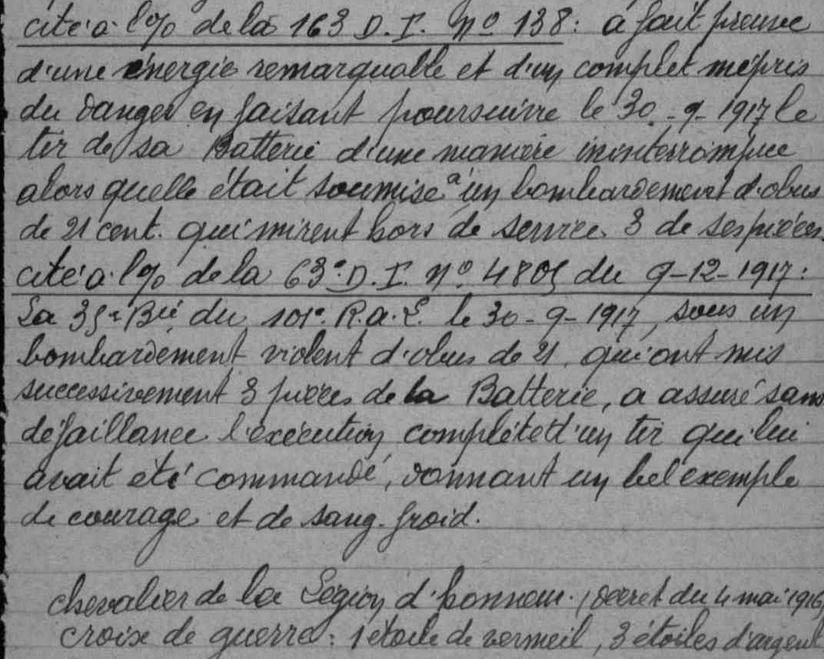 cité à l'o/o de la 163 D.I. Nº 138: a fait preuve
d'une énergie remarquable et d'un complet mépris
du danger en faisant poursuivre le 30-9-1917 le
tir de sa Batterie d'une manière ininterrompue
alors quelle était soumise à un bombardement d'obus
de 21 cent. qui mirent hors de service 3 de ses pièces.
cité à l'o/o de la 63e D.I. Nº 4805 du 9-12-1917:
La 35e Bie du 101e R.A.L. le 30-9-1917, sous un
bombardement violent d'obus de 21, qui ont mis
successivement 3 pièces de la Batterie, a assuré sans
défaillance l'exécution complète d'un tir qui lui
avait été commandé, donnant un bel exemple
de courage et de sang-froid.
chevalier de la Légion d'honneur. (décret du 4 mai 1916)
croix de guerre: 1 étoile de vermeil, 3 étoiles d'argent